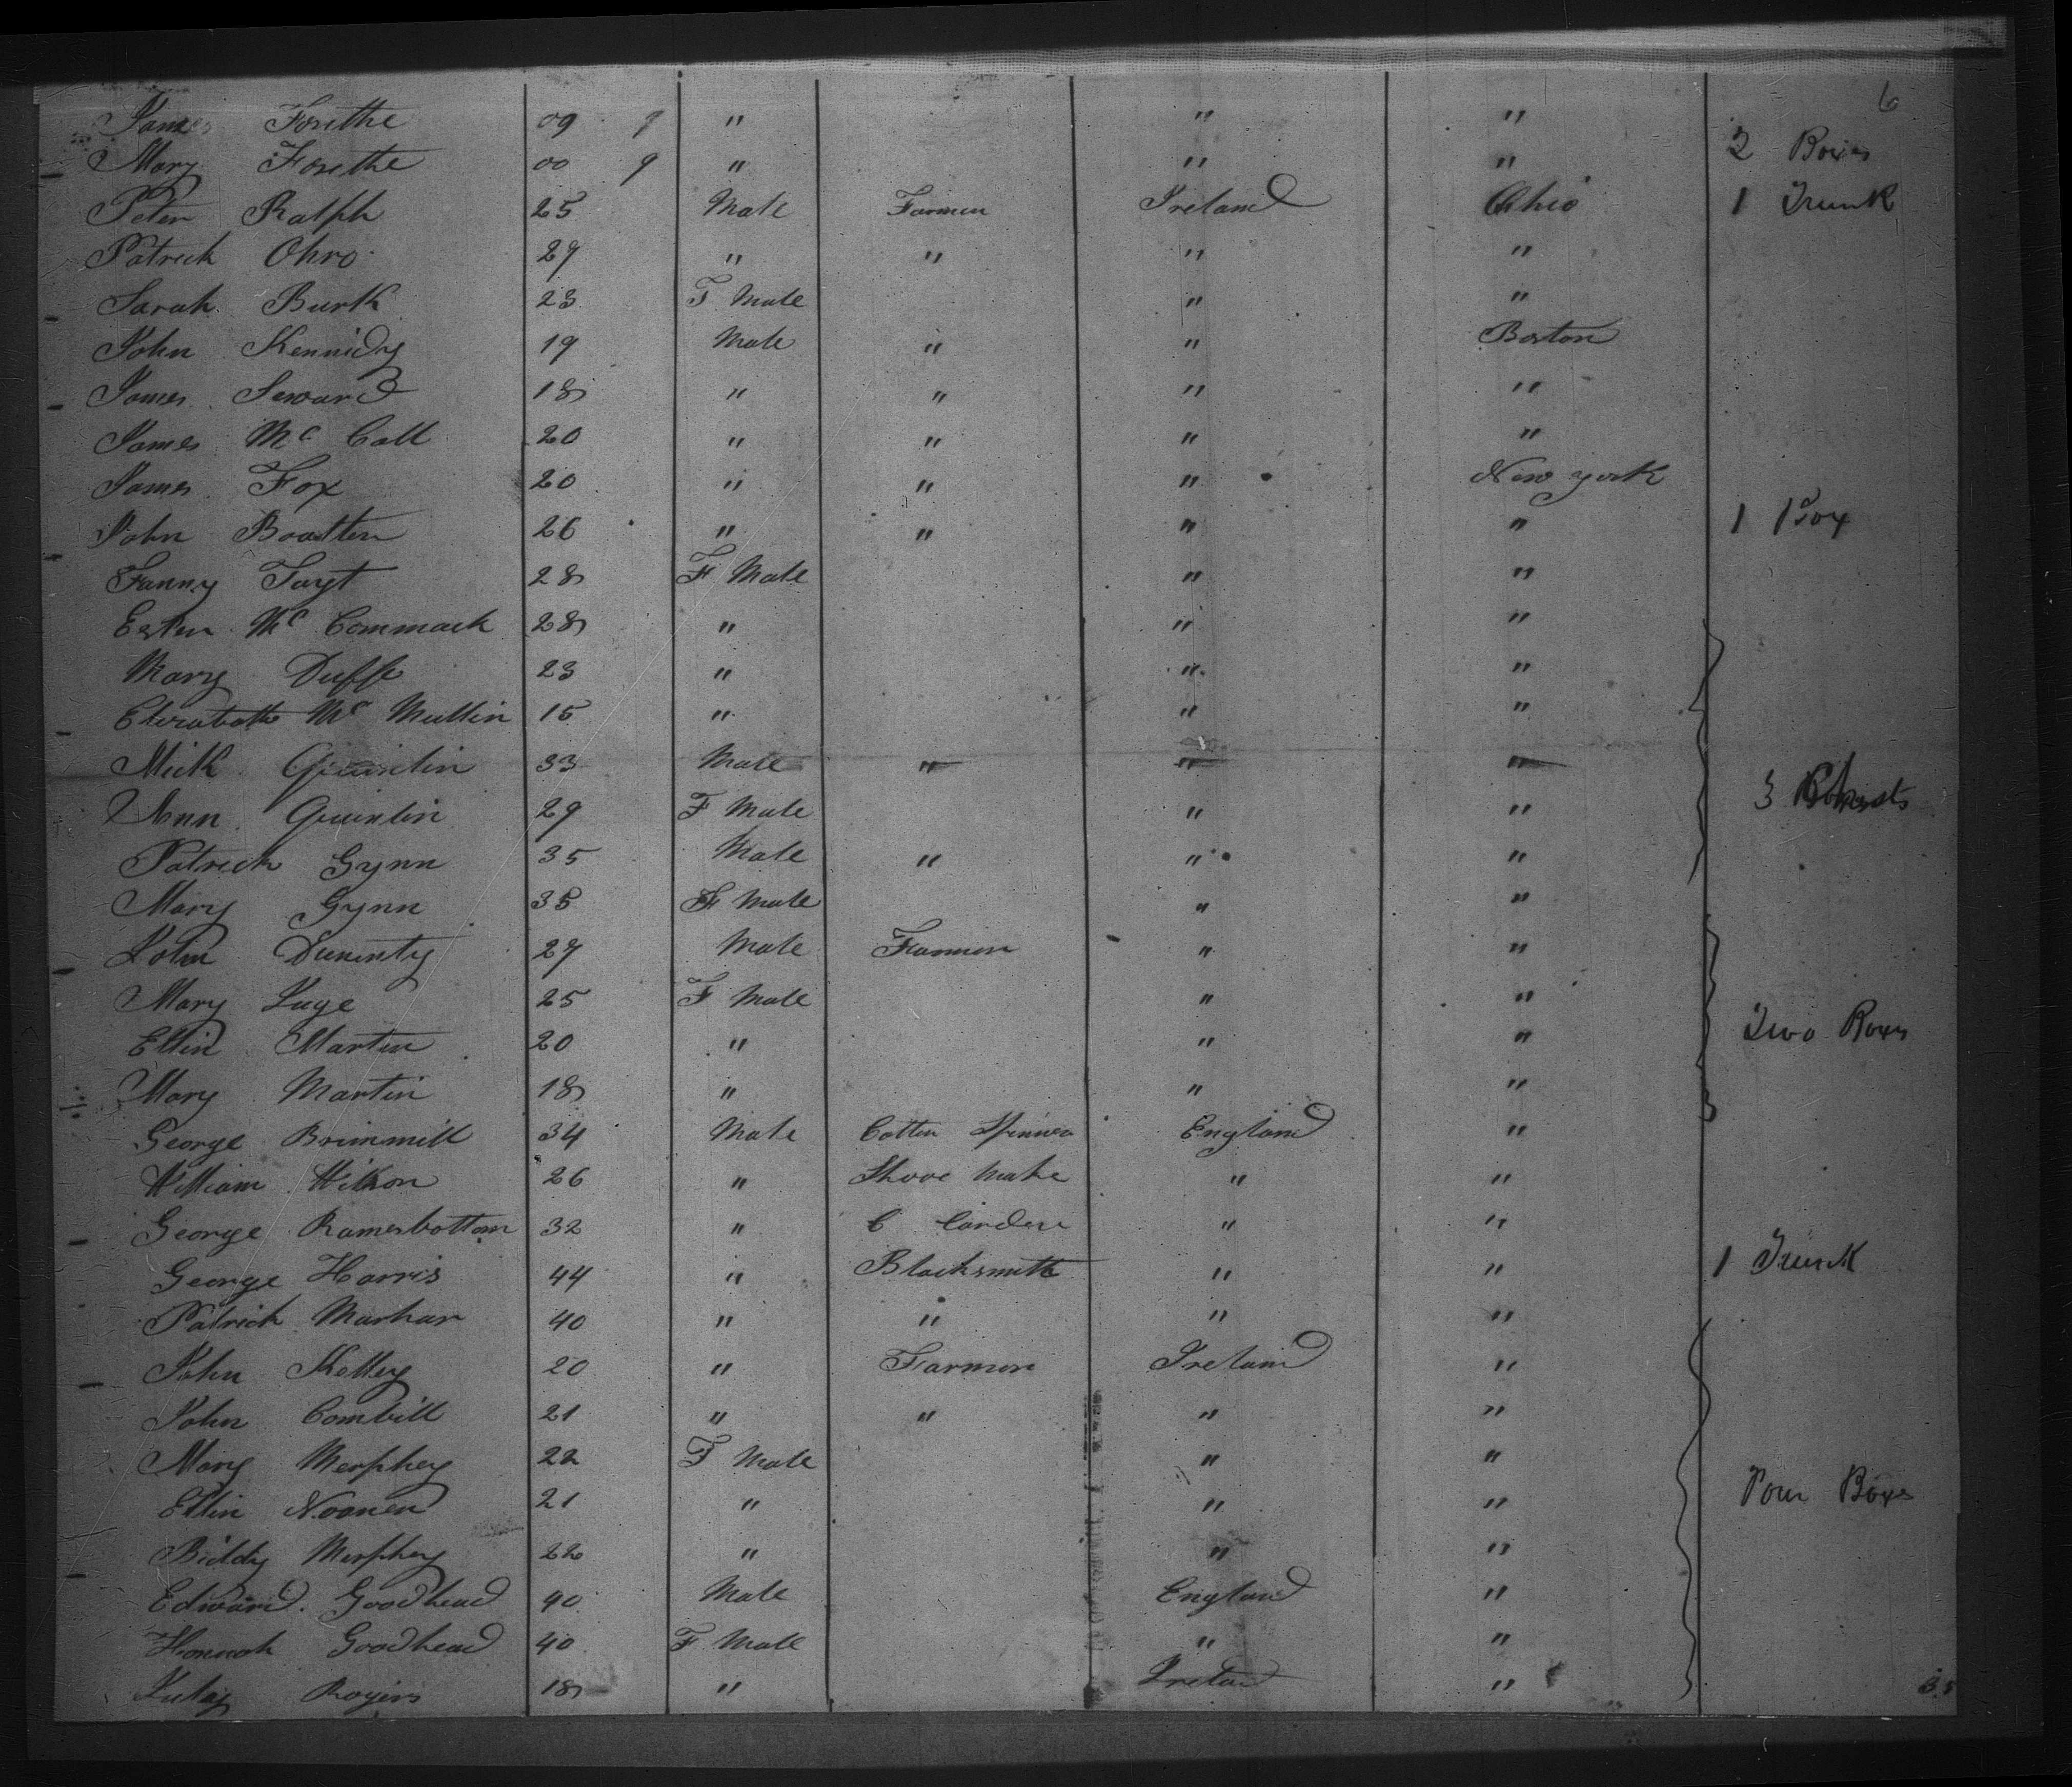 6
James Forsithe 09 9 " " "
Mary Forsithe 00 9 " " " 2 Boxes
Peter Ralph 25 Male Farmer Ireland Ohio 1 Trunk
Patrick Ohro 29 " " " "
Sarah Burk 23 F Male " "
John Kennidy 19 Male " " Boston
James Seward 18 " " " "
James Mc Call 20 " " " "
James Fox 20 " " " New york
John Boatten 26 " " " " 1 Box
Fanny Tayt 28 F Male " "
Ester Mc Commack 28 " " "
Mary Duffe 23 " " "
Elizabath Mc Mullin 15 " " "
Mick Quinlin 33 Male " " " 3
Ann Quinlin 29 F Male " "
Patrick Gynn 35 Male " " "
Mary Gynn 35 F Male " "
John 29 Male Farmer " "
Mary 25 F Male " "
Ellin Martin 20 " " " Two Boxes
Mary Martin 18 " " "
George Brimmill 34 Male Cotten Spinner England "
William Wilson 26 " Shooe Make " "
George Ramesbottom 32 " C Carder " "
George Harris 44 " Blacksmith " " 1 Trunk
Patrick Marhar 40 " " " "
John Kelley 20 " Farmer Ireland "
John Combill 21 " " " "
Mary Merphey 22 F Male " "
Ellin Noonen 21 " " " Four Boxes
Biddy Merphey 22 " " "
Edward Goodhead 40 Male England "
Hannah Goodhead 40 F Male " "
Rogers 18 " Ireland "
35